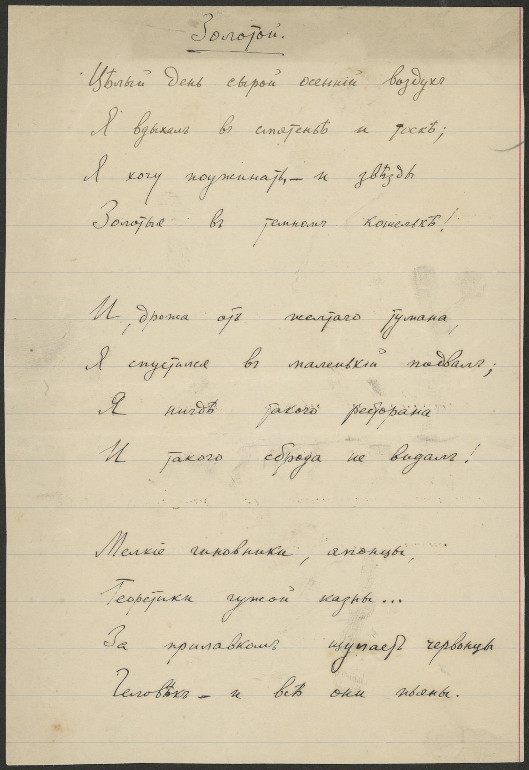 Золотой.
Цѣлый день сырой осенній воздухъ
Я вдыхалъ въ смятеньѣ и тоскѣ;
Я хочу поужинать, – и звѣзды
Золотыя въ темномъ кошелькѣ!
И, дрожа отъ желтаго тумана,
Я спустился въ маленькій подвалъ;
Я нигдѣ такого ресторана
И такого сброда не видалъ!
Мелкіе чиновники, японцы,
Теоретики чужой казны...
За прилавкомъ щупаетъ червонцы
Человѣкъ – и всѣ они пьяны.